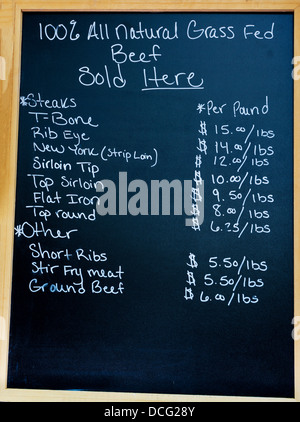 100% All Natural Grass Fed
Beef
Sold Here
*Steaks *Per Pound
T-Bone $ 15.00/lbs
Rib Eye $ 14.00/lbs
New York (Strip Loin) $ 12.00/lbs
Sirloin Tip $ 10.00/lbs
Top Sirloin $ 9.50/lbs
Flat Iron $ 8.00/lbs
Top round $ 6.25/lbs
*Other
Short Ribs $ 5.50/lbs
Stir Fry meat $ 5.50/lbs
Ground Beef $ 6.00/lbs